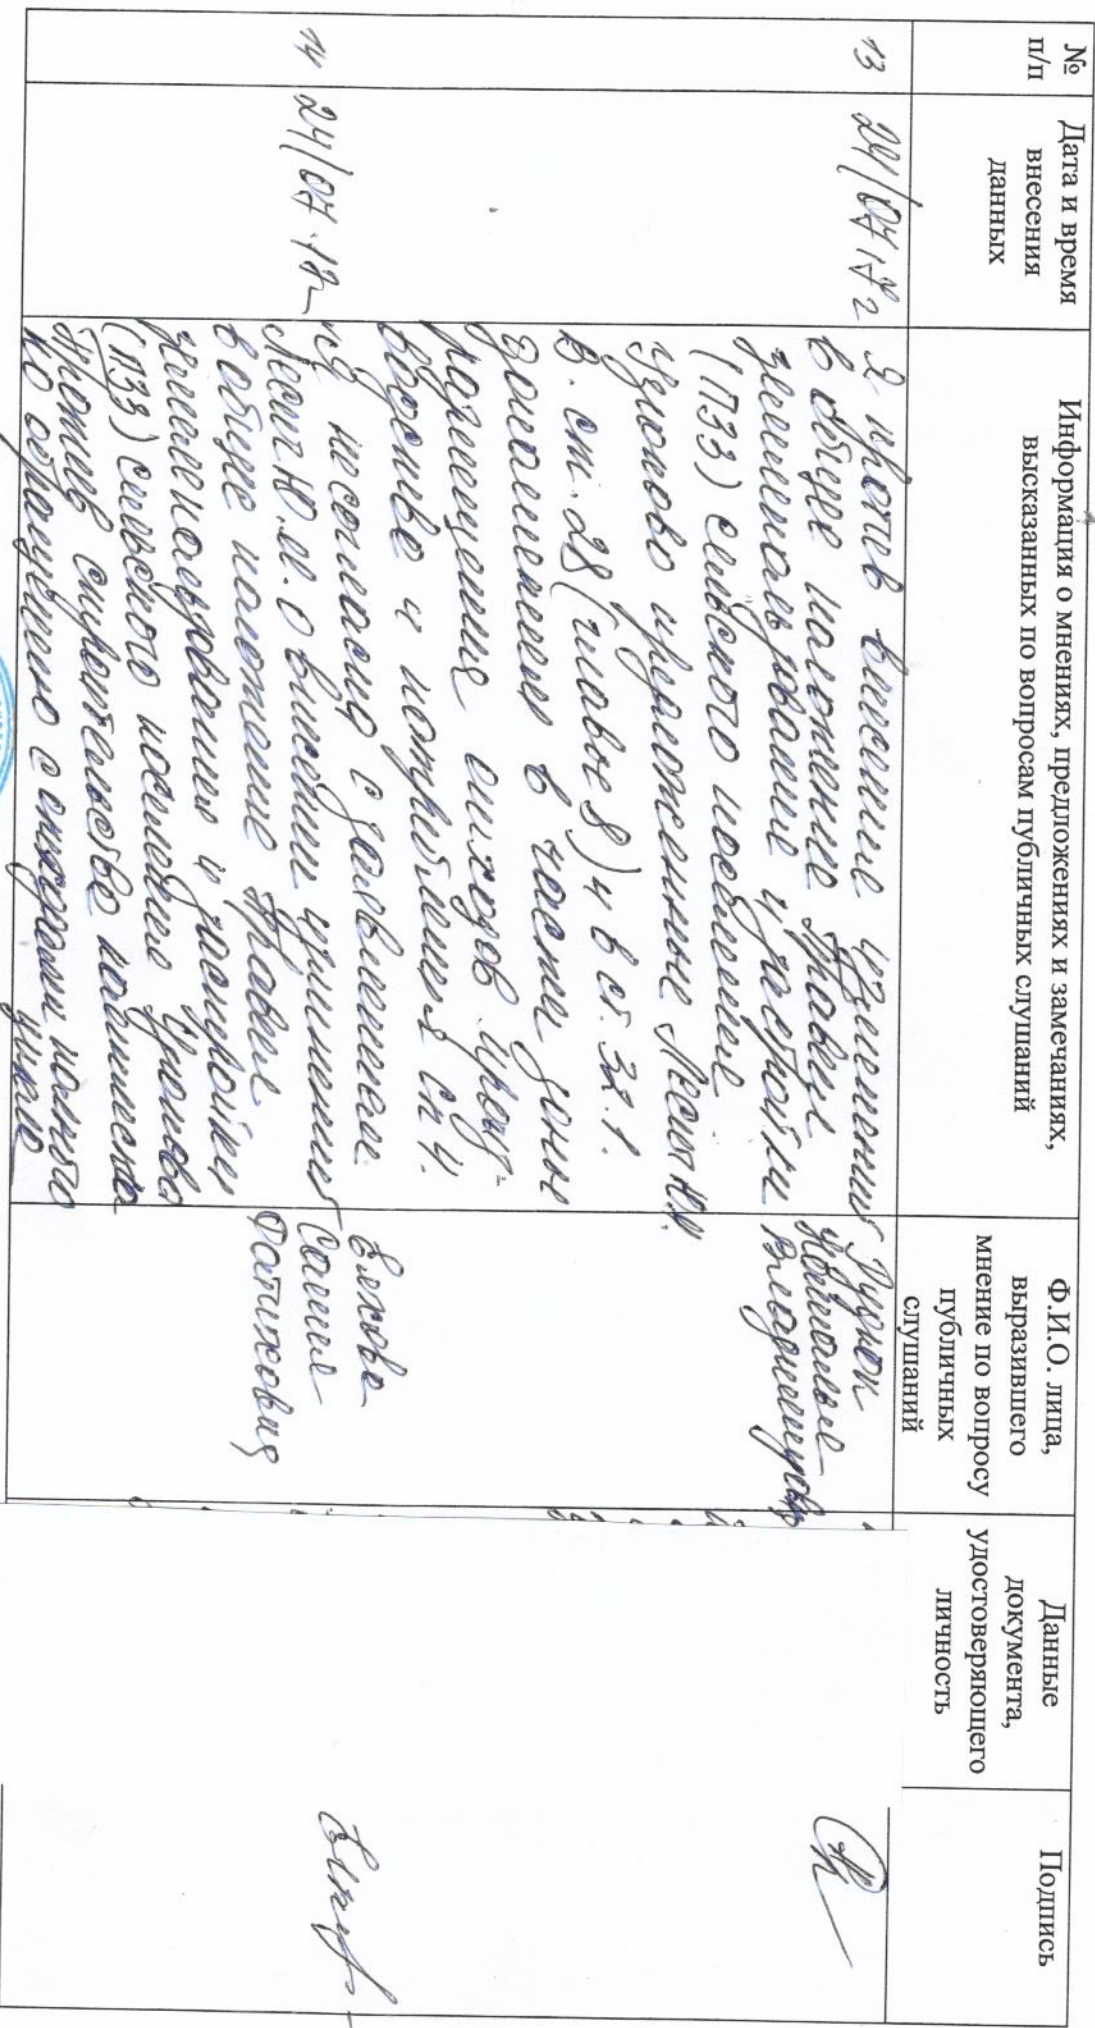 № п/п
Дата и время внесения данных
Информация о мнениях, предложениях и замечаниях, высказанных по вопросам публичных слушаний
Ф.И.О. лица, выразившего мнение по вопросу публичных слушаний
Данные документа, удостоверяющего личность
Подпись
13
24/07 17 г
Я против внесения изменений
в общее положение Правил
землепользования и застройки
(ПЗЗ) сельского поселения
Узюково предложенные Лесит Ю.М.
В. ст. 28 (главе 8) и в ст. 32.1.
дополнения в части зоны
размещения отходов произ-
водства и потребления сп 4.
Рудюк
Владимировна
14
24/07.17
не согласна с заявлением
Лесит Ю.М. о внесении изменений
в общее положение Правил
землепользования и застройки
(ПЗЗ) сельского поселения Узюково
Против строительства
Фатиховна